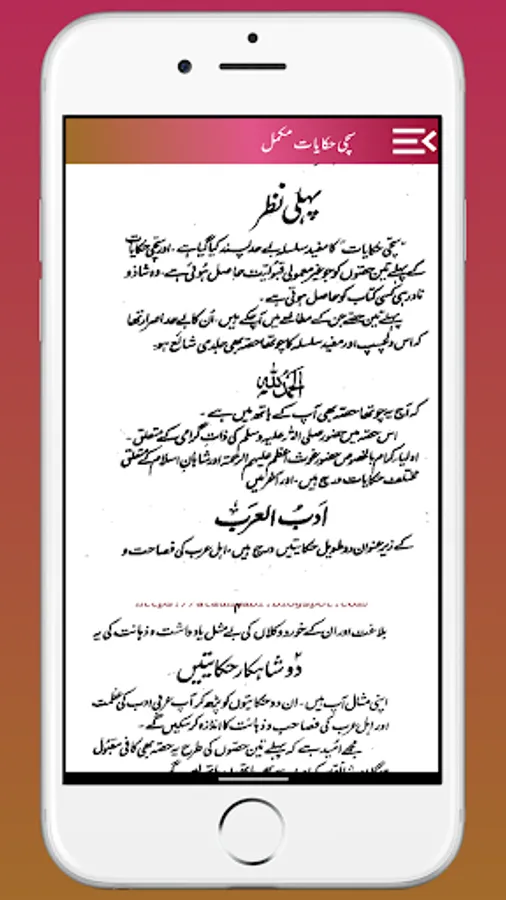 سچی حکایات مکمل
پہلی نظر
"سچی حکایات" کا مفید سلسلہ بے حد پسند کیا گیا ہے ۔ اور سچی حکایات
کے پہلے تین حصوں کو جو غیر معمولی قبولیت حاصل ہوئی ہے ۔ وہ شاذ و
نادر ہی کسی کتاب کو حاصل ہوتی ہے ۔
پہلے تین حصے جن کے مطالعے میں آچکے ہیں ۔ اُن کا بے حد اصرار تھا
کہ اس دلچسپ اور مفید سلسلہ کا چوتھا حصہ بھی جلدی شائع ہو:
الحمدللہ
کہ آج یہ چوتھا حصہ بھی آپ کے ہاتھ میں ہے ۔
اس حصہ میں حضور صلی اللہ علیہ وسلم کی ذاتِ گرامی کے متعلق ۔
اولیاء کرام بالخصوص حضور غوث اعظم علیہم الرحمۃ اور شاہانِ اسلام کے متعلق
مختلف حکایات درج ہیں ۔ اور آخر میں
ادبُ العرب
کے زیر عنوان دو طویل حکایتیں درج ہیں ۔ اہل عرب کی فصاحت و
بلاغت اور ان کے خورد و کلاں کی بے مثل یادداشت و ذہانت کی یہ
دو شاہکار حکایتیں
اپنی مثال آپ ہیں ۔ ان دو حکایتوں کو پڑھ کر آپ عربی ادب کی عظمت
اور اہل عرب کی فصاحت و ذہانت کا اندازہ کر سکیں گے ۔
مجھے اُمید ہے کہ پہلے تین حصوں کی طرح یہ حصہ بھی کافی مقبول